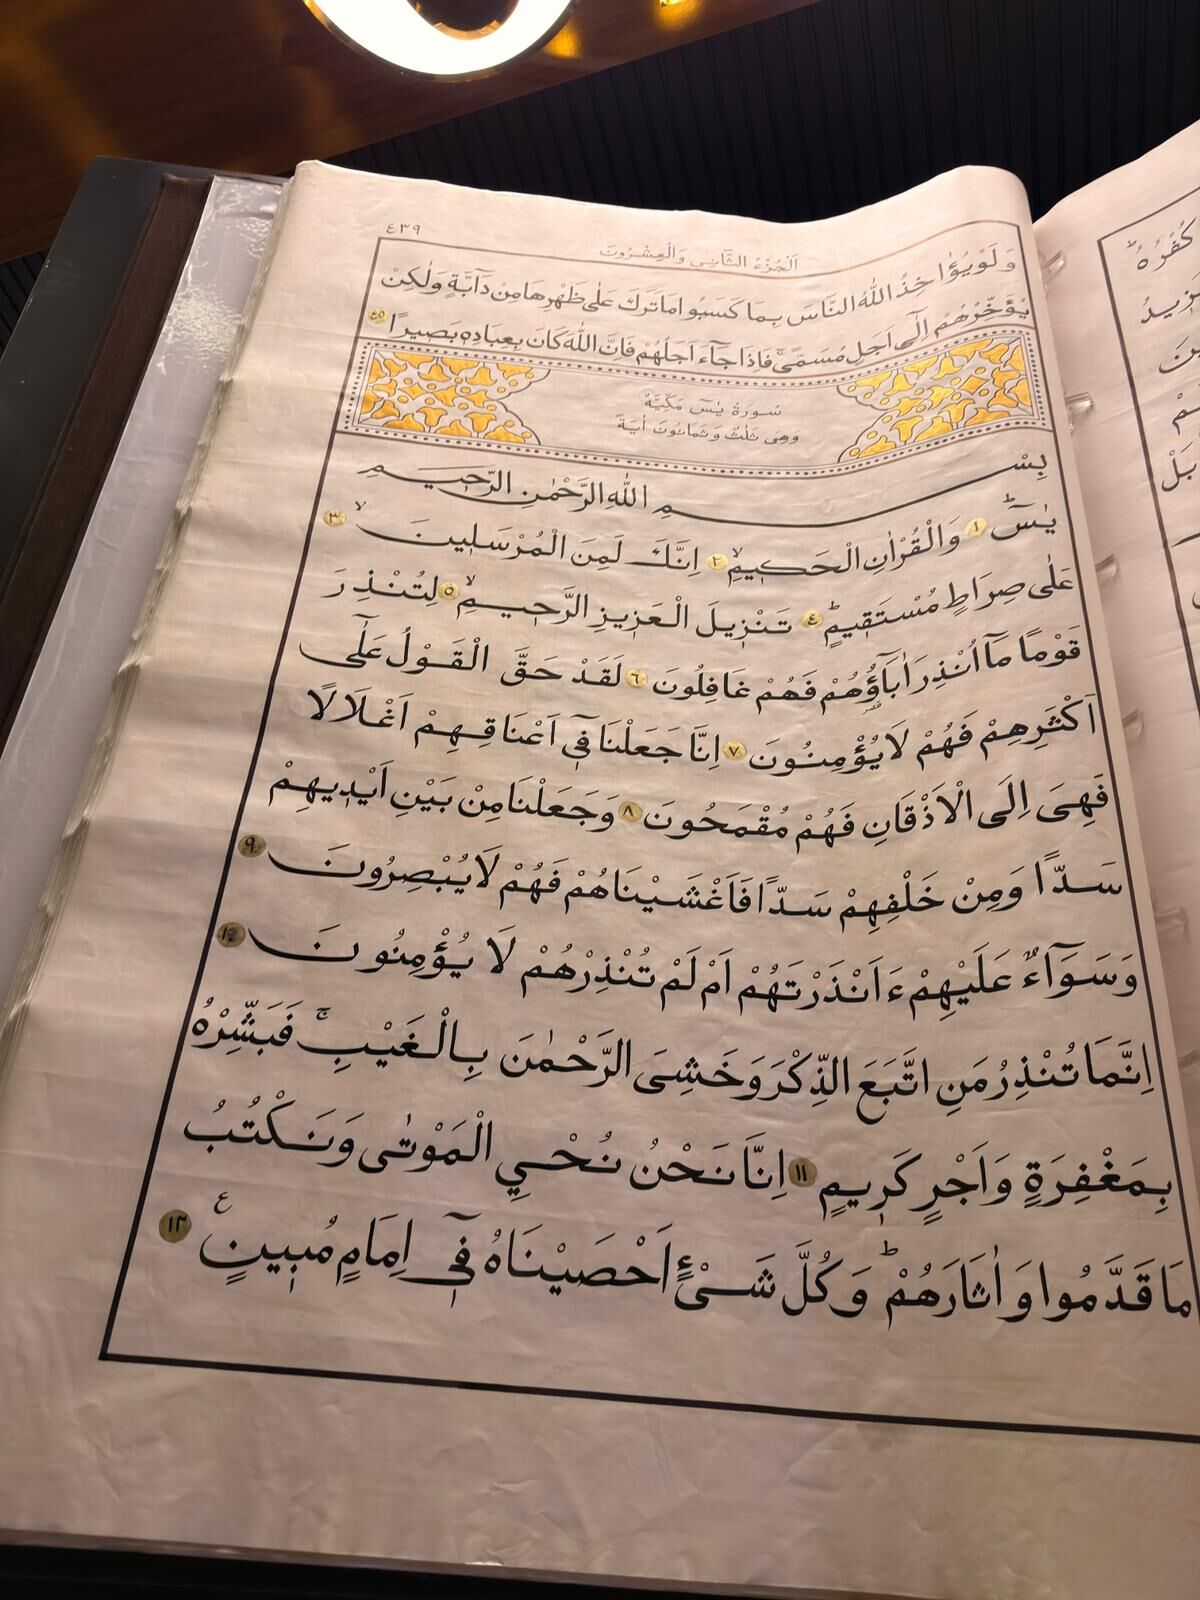 ٤٣٩
اَلْجُزْءُ الثَّانِي وَالْعِشْرُونَ
وَلَوْ يُؤٰاخِذُ اللّٰهُ النَّاسَ بِمَا كَسَبُوا مَا تَرَكَ عَلٰى ظَهْرِهَا مِنْ دَٓابَّةٍ وَلٰكِنْ
يُؤَخِّرُهُمْ اِلٰٓى اَجَلٍ مُسَمًّىۚ فَاِذَا جَٓاءَ اَجَلُهُمْ فَاِنَّ اللّٰهَ كَانَ بِعِبَادِه۪ بَص۪يرًا ٤٥
سُورَةُ يٰسٓ مَكِّيَّةٌ
وَهِيَ ثَلٰثٌ وَثَمَانُونَ اٰيَةً
بِسْمِ اللّٰهِ الرَّحْمٰنِ الرَّح۪يمِ
يٰسٓۜ ١ وَالْقُرْاٰنِ الْحَك۪يمِۙ ٢ اِنَّكَ لَمِنَ الْمُرْسَل۪ينَۙ ٣
عَلٰى صِرَاطٍ مُسْتَق۪يمٍۜ ٤ تَنْز۪يلَ الْعَز۪يزِ الرَّح۪يمِۙ ٥ لِتُنْذِرَ
قَوْمًا مَٓا اُنْذِرَ اٰبَٓاؤُ۬هُمْ فَهُمْ غَافِلُونَ ٦ لَقَدْ حَقَّ الْقَوْلُ عَلٰٓى
اَكْثَرِهِمْ فَهُمْ لَا يُؤْمِنُونَ ٧ اِنَّا جَعَلْنَا ف۪ٓي اَعْنَاقِهِمْ اَغْلَالًا
فَهِيَ اِلَى الْاَذْقَانِ فَهُمْ مُقْمَحُونَ ٨ وَجَعَلْنَا مِنْ بَيْنِ اَيْد۪يهِمْ
سَدًّا وَمِنْ خَلْفِهِمْ سَدًّا فَاَغْشَيْنَاهُمْ فَهُمْ لَا يُبْصِرُونَ ٩
وَسَوَٓاءٌ عَلَيْهِمْ ءَاَنْذَرْتَهُمْ اَمْ لَمْ تُنْذِرْهُمْ لَا يُؤْمِنُونَ ١٠
اِنَّمَا تُنْذِرُ مَنِ اتَّبَعَ الذِّكْرَ وَخَشِيَ الرَّحْمٰنَ بِالْغَيْبِۚ فَبَشِّرْهُ
بِمَغْفِرَةٍ وَاَجْرٍ كَر۪يمٍ ١١ اِنَّا نَحْنُ نُحْيِي الْمَوْتٰى وَنَكْتُبُ
مَا قَدَّمُوا وَاٰثَارَهُمْۜ وَكُلَّ شَيْءٍ اَحْصَيْنَاهُ ف۪ٓي اِمَامٍ مُب۪ينٍ ع ١٢
كُفْرُهُۜ
يَز۪يدُ
بَلْ